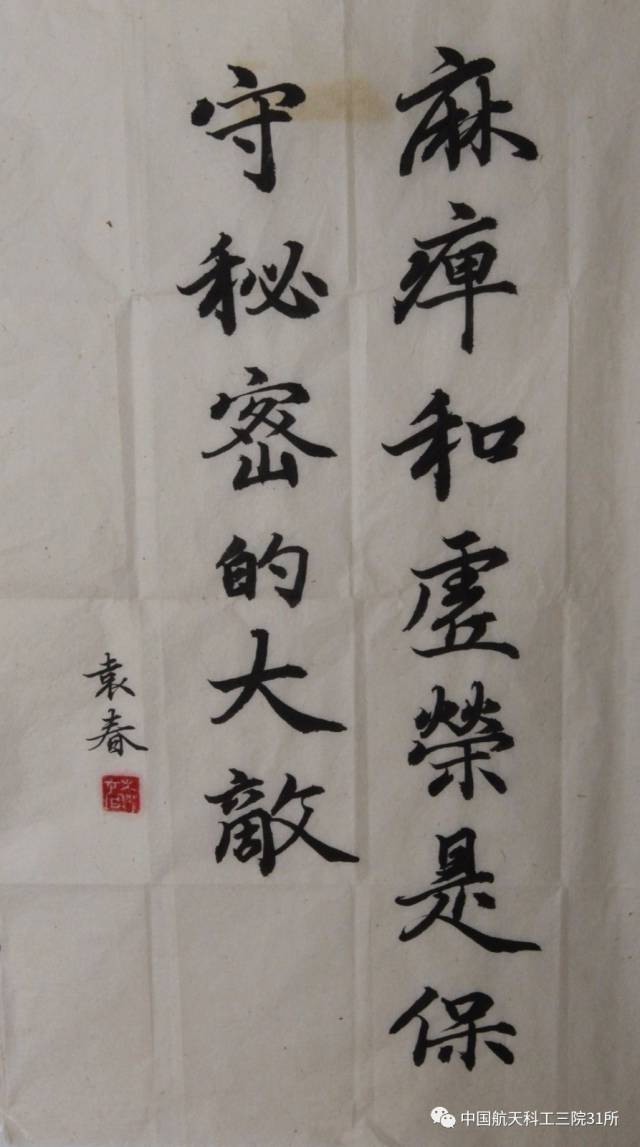 麻痺和虛榮是保
守秘密的大敵
袁春
中国航天科工三院31所